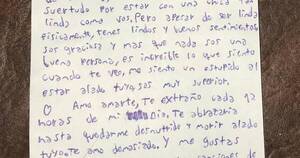 suertudo por estar con una chica tan
linda como sos, Pero apesar de ser linda
fisicamente, tenes lindos y buenos sentimientos
sos graciosa y mas que nada sos una
buena persona, es increible lo que siento
cuando te veo, me siento un estupido al
estar alado tuyo, sos muy superior.
Amo amarte, Te extraño cada 12
horas de mi dia, Te abrazaria
hasta quedarme desnutrido y morir alado
tuyo. Te amo demasiado, y me gustas